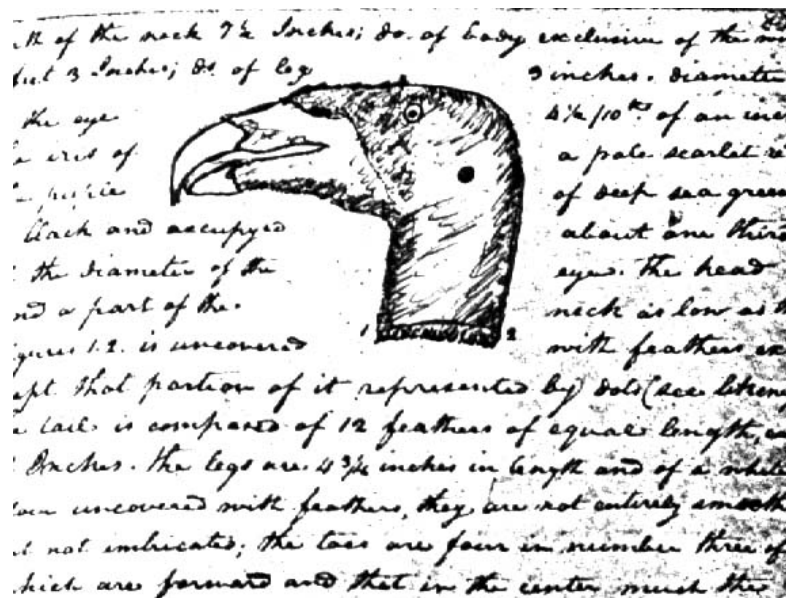 of the neck 7½ Inches; do. of body exclusive of the
3 Inches; do. of leg 9 inches. diameter
the eye 4½/10ths of an
iris of a pale scarlet
of deep sea green
black and occupyed about one third
the diameter of the eye. the head
a part of the neck as low as
figures 1.2. is uncovered with feathers
1 2
that portion of it represented by dots (see
tail is composed of 12 feathers of equal length,
Inches. the legs are 4¾ inches in length and of a white
uncovered with feathers, they are not entirely smooth
not imbricated; the toes are four in number three of
which are forward and that in the center much the